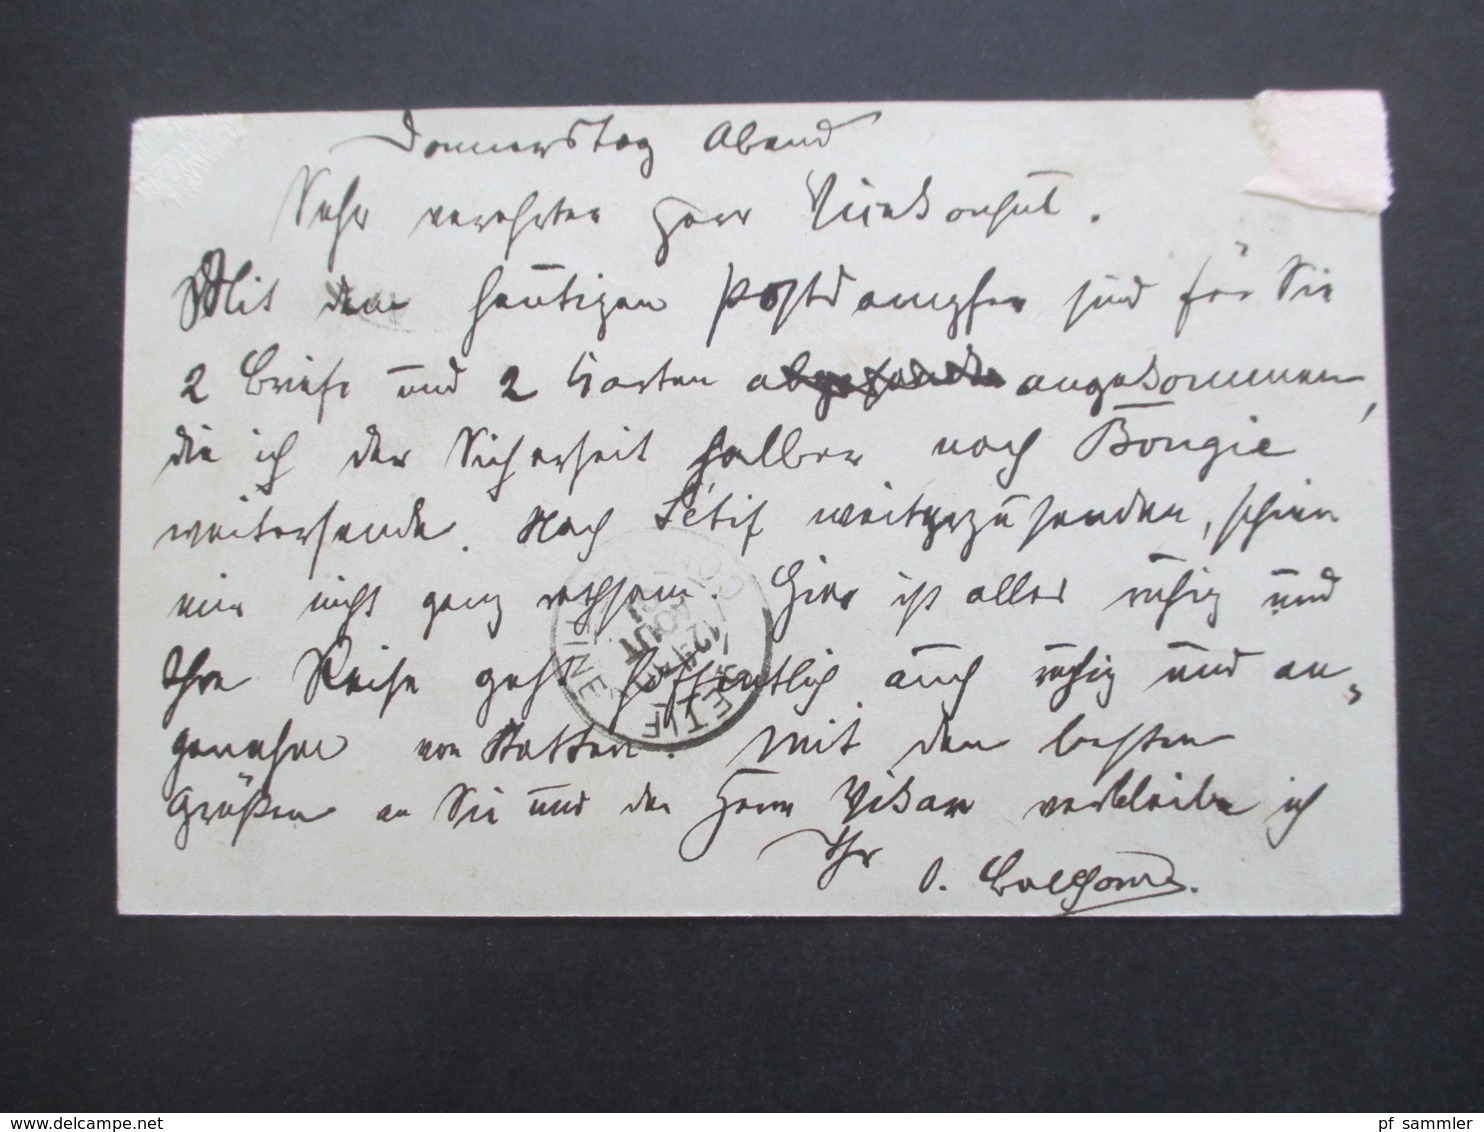 Donnerstag Abend
Sehr verehrter Herr Vicekonsul.
Mit dem heutigen Postdampfer sind für Sie
2 Briefe und 2 Karten abgesandt angekommen,
die ich der Sicherheit halber nach Bougie
weitersende. Nach Sétif weiterzusenden, schien
mir nicht ganz rathsam. Hier ist alles ruhig und
Ihre Reise geht hoffentlich auch ruhig und an-
genehm von Statten. Mit den besten
Grüßen an Sie und den Herrn Vikar verbleibe ich
Ihr
SETIF
AOUT
pf sammler
delcampe.net